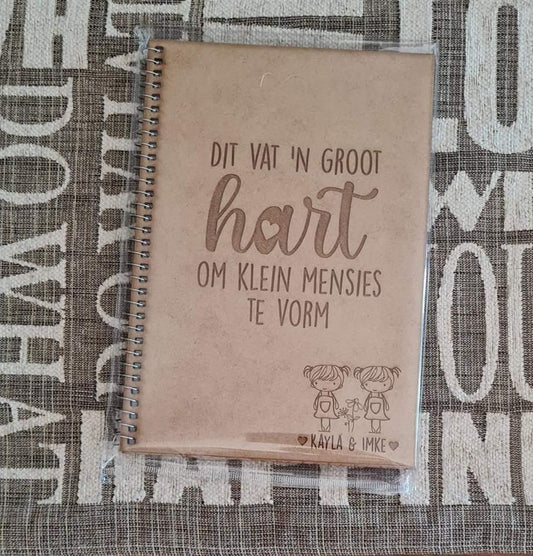 DIT VAT 'N GROOT
hart
OM KLEIN MENSIES
TE VORM
KAYLA & IMKE
DO WHAT